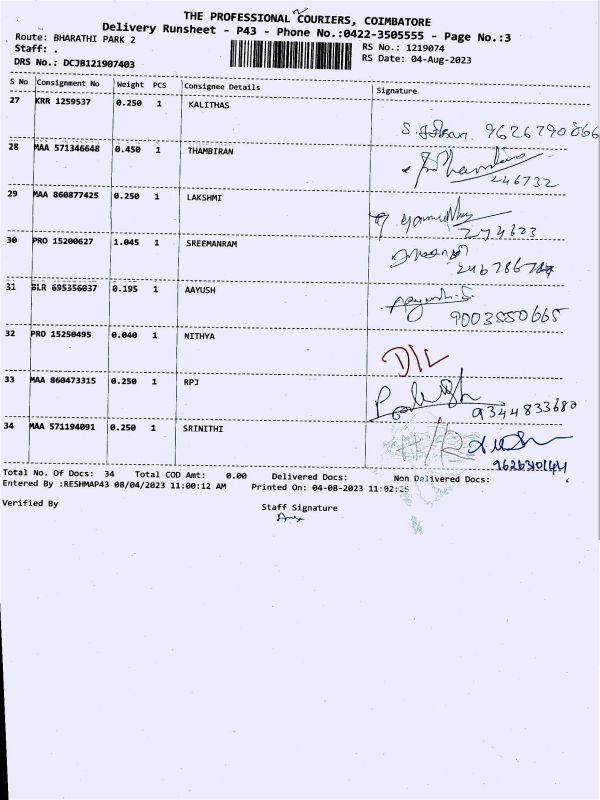 THE PROFESSIONAL COURIERS, COIMBATORE
Delivery Runsheet - P43 - Phone No.:0422-3505555 - Page No.:3
Route: BHARATHI PARK 2
RS No.: 1219074
Staff: .
RS Date: 04-Aug-2023
DRS No.: DCJB121907403
S No Consignment No Weight PCS Consignee Details Signature
27 KRR 1259537 0.250 1 KALITHAS
9626790866
28 MAA 571346648 0.450 1 THAMBIRAN
246732
29 MAA 860877425 0.250 1 LAKSHMI
274623
30 PRO 15200627 1.045 1 SREEMANRAM
31 BLR 695356037 0.195 1 AAYUSH
Aayush.S
9003550665
32 PRO 15250495 0.040 1 NITHYA
D/L
33 MAA 860473315 0.250 1 RPJ
9344833680
34 MAA 571194091 0.250 1 SRINITHI
Total No. Of Docs: 34 Total COD Amt: 0.00 Delivered Docs: Non Delivered Docs:
Entered By :RESHMAP43 08/04/2023 11:00:12 AM Printed On: 04-08-2023 11:02:25
Verified By
Staff Signature